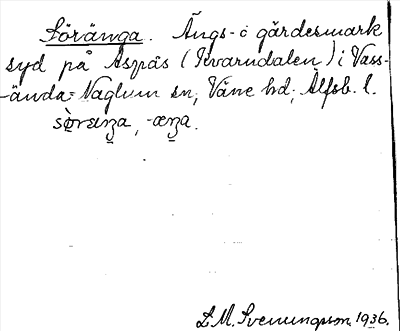 Söränga. Ängs- o gärdesmark
syd på Åsnäs (Kvarndalen) i Vass-
-ända-Naglum sn, Väne hd, Älfsb. l.
-æŋa.
L. M. Svenungsson 1936.